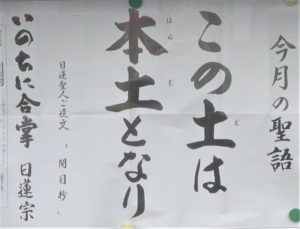 今月の聖語
この土は
ど
本土となり
ほんど
日蓮聖人ご遺文 「開目抄」
いのちに合掌 日蓮宗